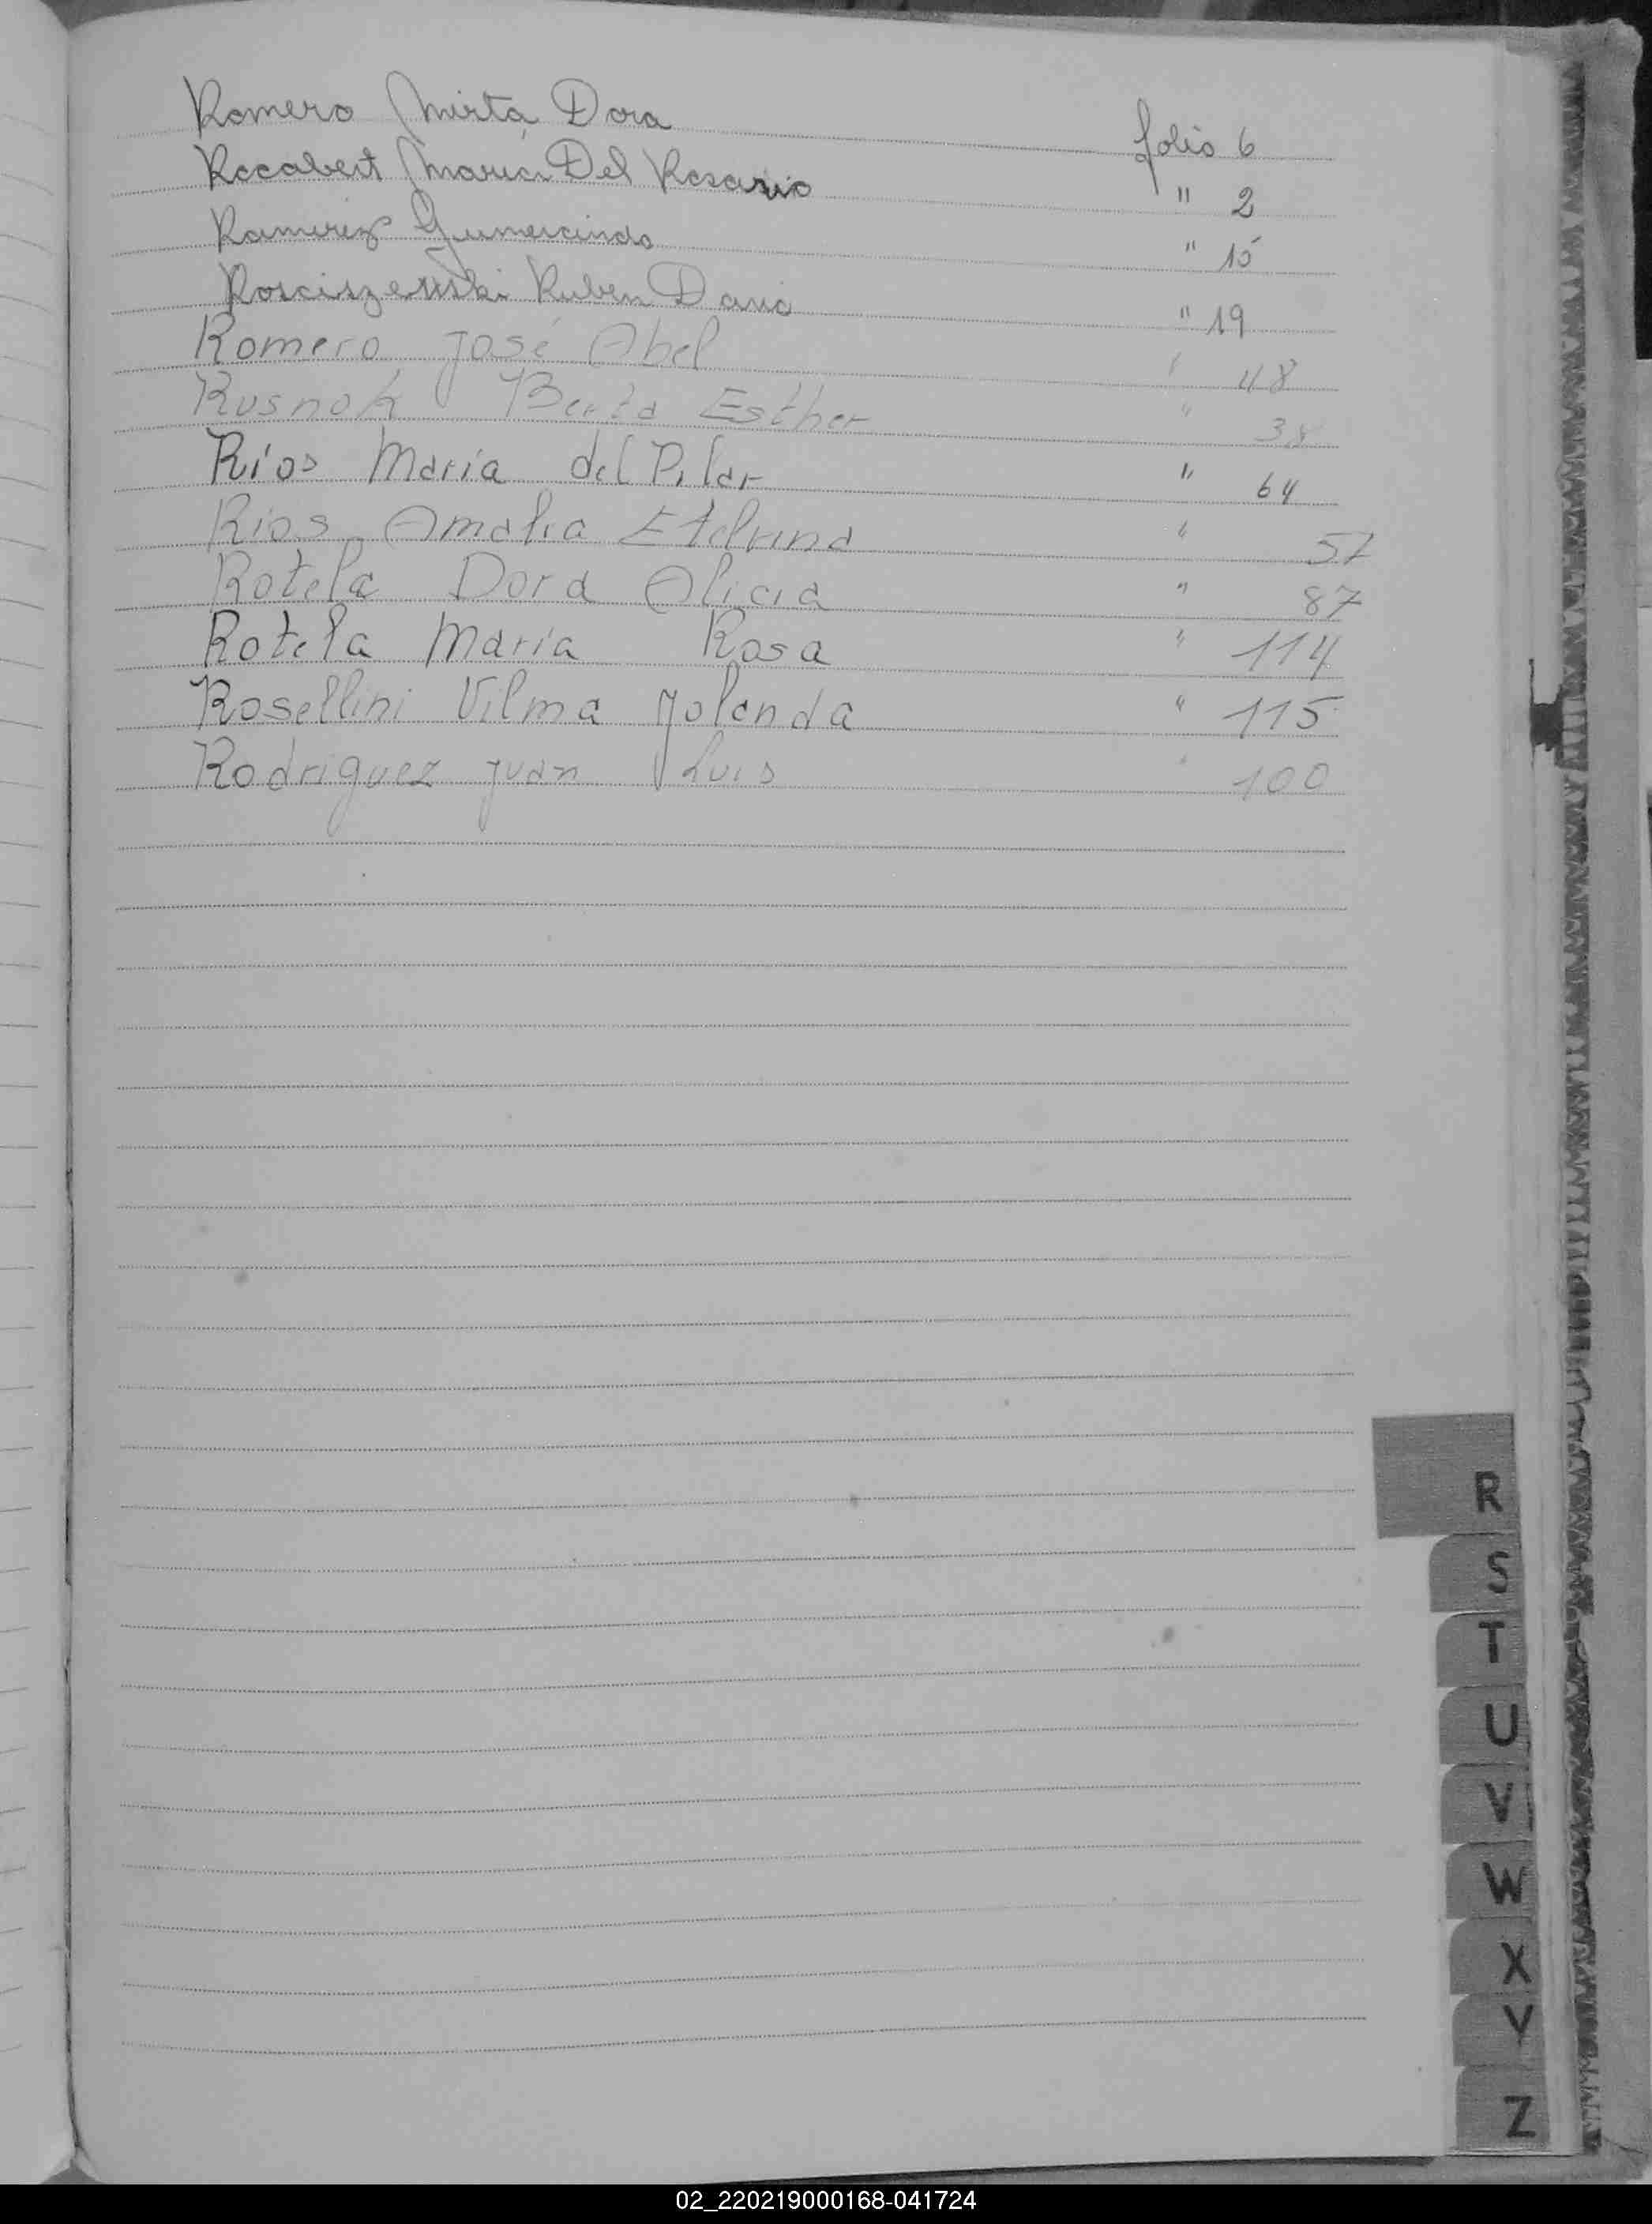 Romero Mirta Dora folio 6
Rocabert Maria Del Rosario " 2
Ramirez Gumercindo " 15
Rosciszewski Ruben Dario " 19
Romero José Abel " 48
Rusnok Berta Esther " 38
Ríos Maria del Pilar " 64
Rios Amalia Etelvina " 57
Rotela Dora Alicia " 87
Rotela María Rosa " 114
Rosellini Vilma Yolanda " 115
Rodriguez Juan Luis " 100
R
S
T
U
V
W
X
Y
Z
02_220219000168-041724